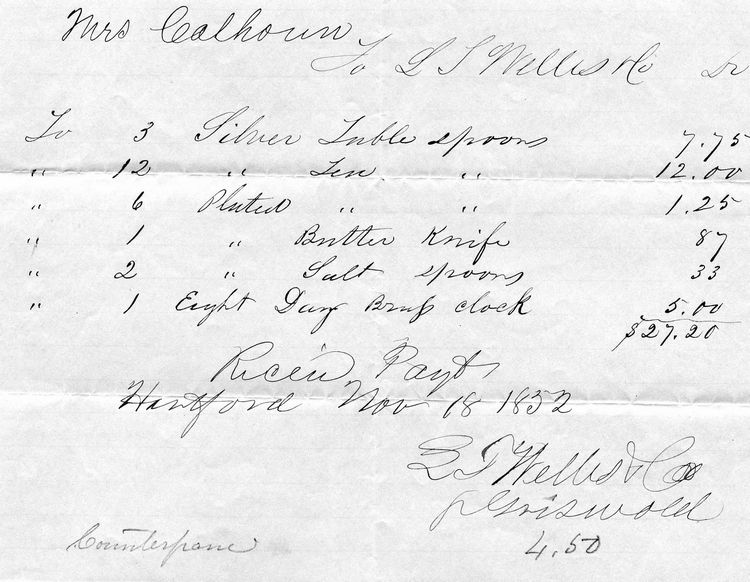 Mrs Calhoun
To L T Welles & Co Dr
To 3 Silver Table spoons 7.75
" 12 " Tea " 12.00
" 6 Plated " " 1.25
" 1 " Butter Knife 87
" 2 " Salt spoons 33
" 1 Eight Day Brass clock 5.00
$27.20
Recein Payt
Hartford Nov 18 1852
L T Welles & Co
Griswold
Counterpane 4.50